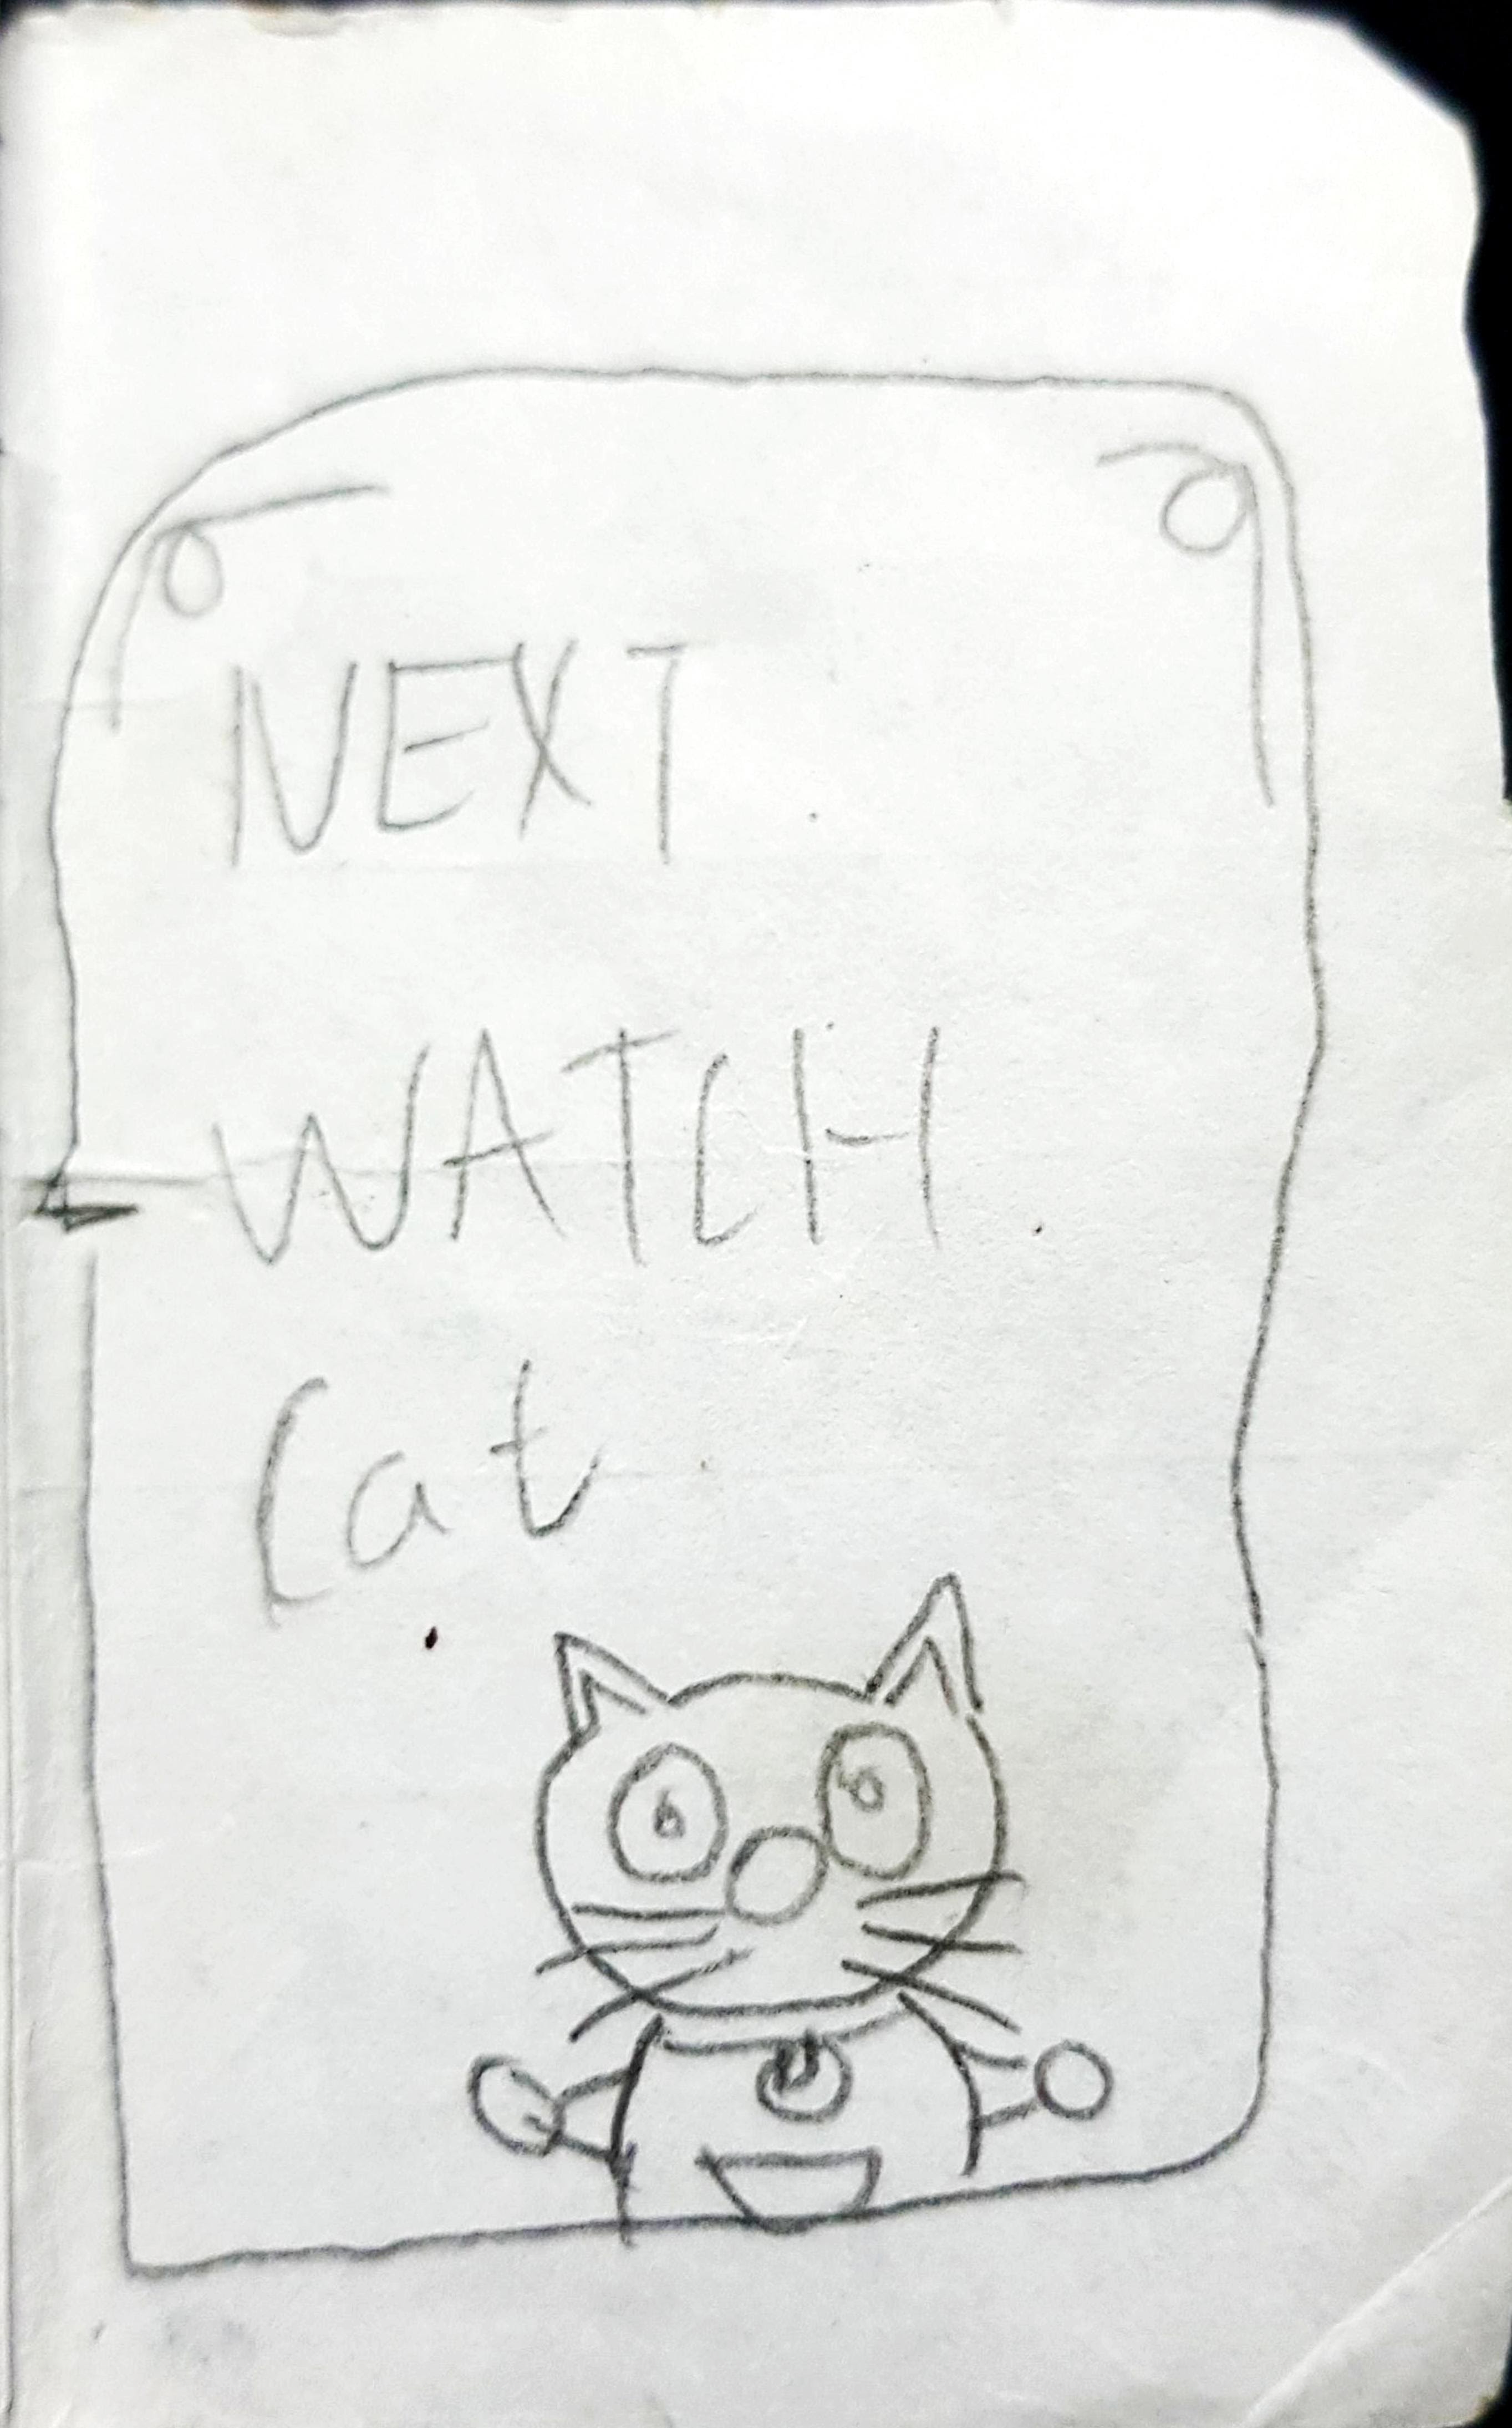 NEXT
WATCH
Cat